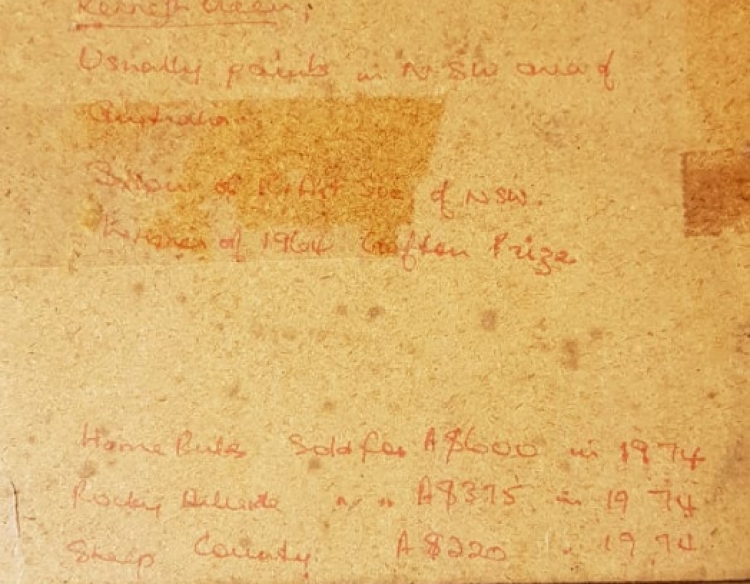 Kenneth Green,
Usually paints in N.SW area of
Australia.
of R. Art Soc of NSW.
Winner of 1964 Grafton Prize
Home Rule Sold for A$600 in 1974
Rocky Hillside " " A$375 in 1974
Sheep County. A$220 " 1974